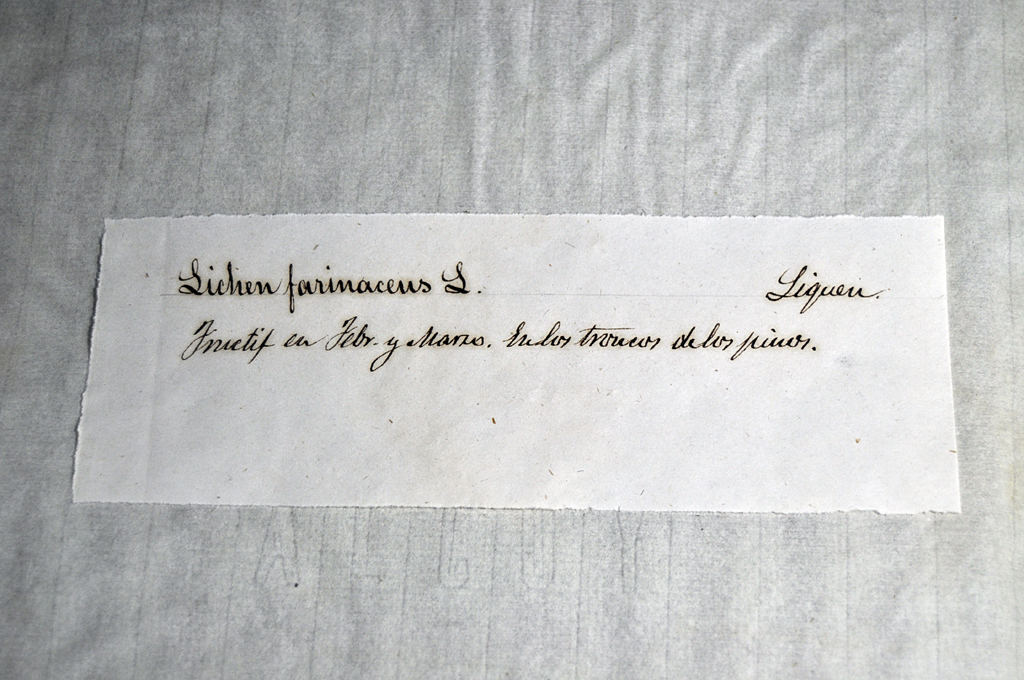 Lichen farinaceus L. Liquen.
Fructif en Febr. y Marzo. En los troncos de los pinos.